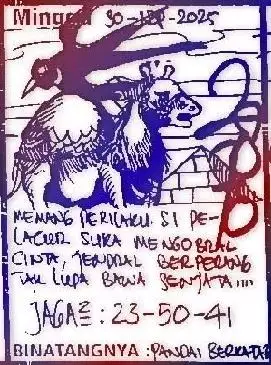 Minggu 30-11-2025
MEMANG PERILAKU SI PE-
LACUR SUKA MENGOBRAL
CINTA, JENDRAL BERPERANG
TAK LUPA BAWA SENJATA....
JAGA2 : 23-50-41
BINATANGNYA : PANDAI BERKATA2